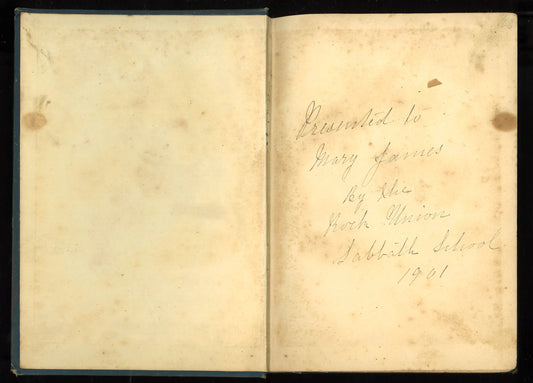 Presented to
Mary James
By the
Rock Union
Sabbath School
1901